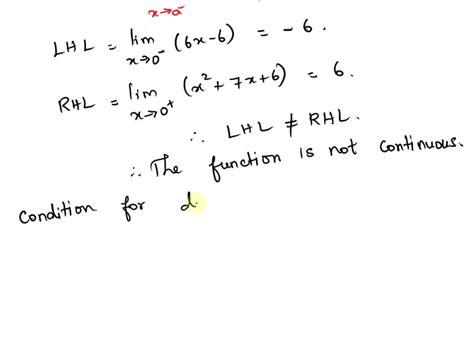 x→a⁻
LHL = lim x→0⁻ (6x-6) = -6.
RHL = lim x→0⁺ (x²+7x+6) = 6.
∴ LHL ≠ RHL.
∴ The function is not continuous.
Condition for d